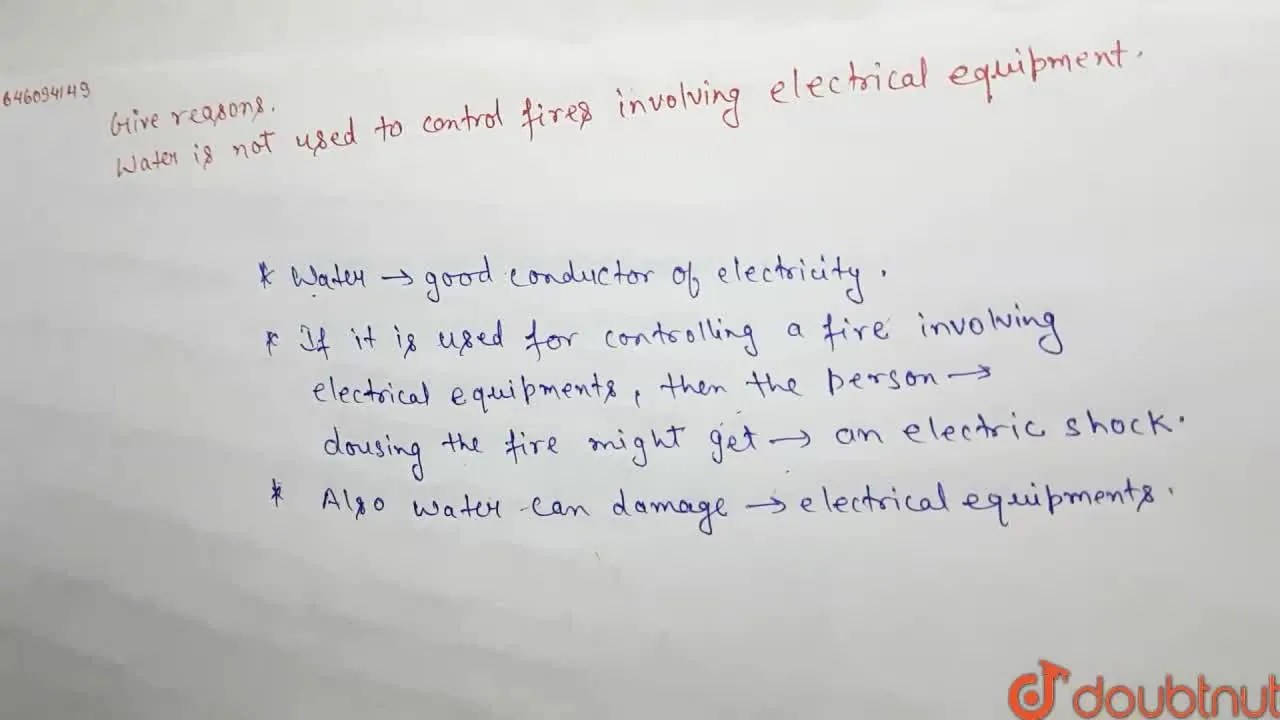 646094149
Give reasons.
Water is not used to control fires involving electrical equipment.
* Water → good conductor of electricity.
* If it is used for controlling a fire involving
electrical equipments, then the person →
dousing the fire might get → an electric shock.
* Also water can damage → electrical equipments.
doubtnut